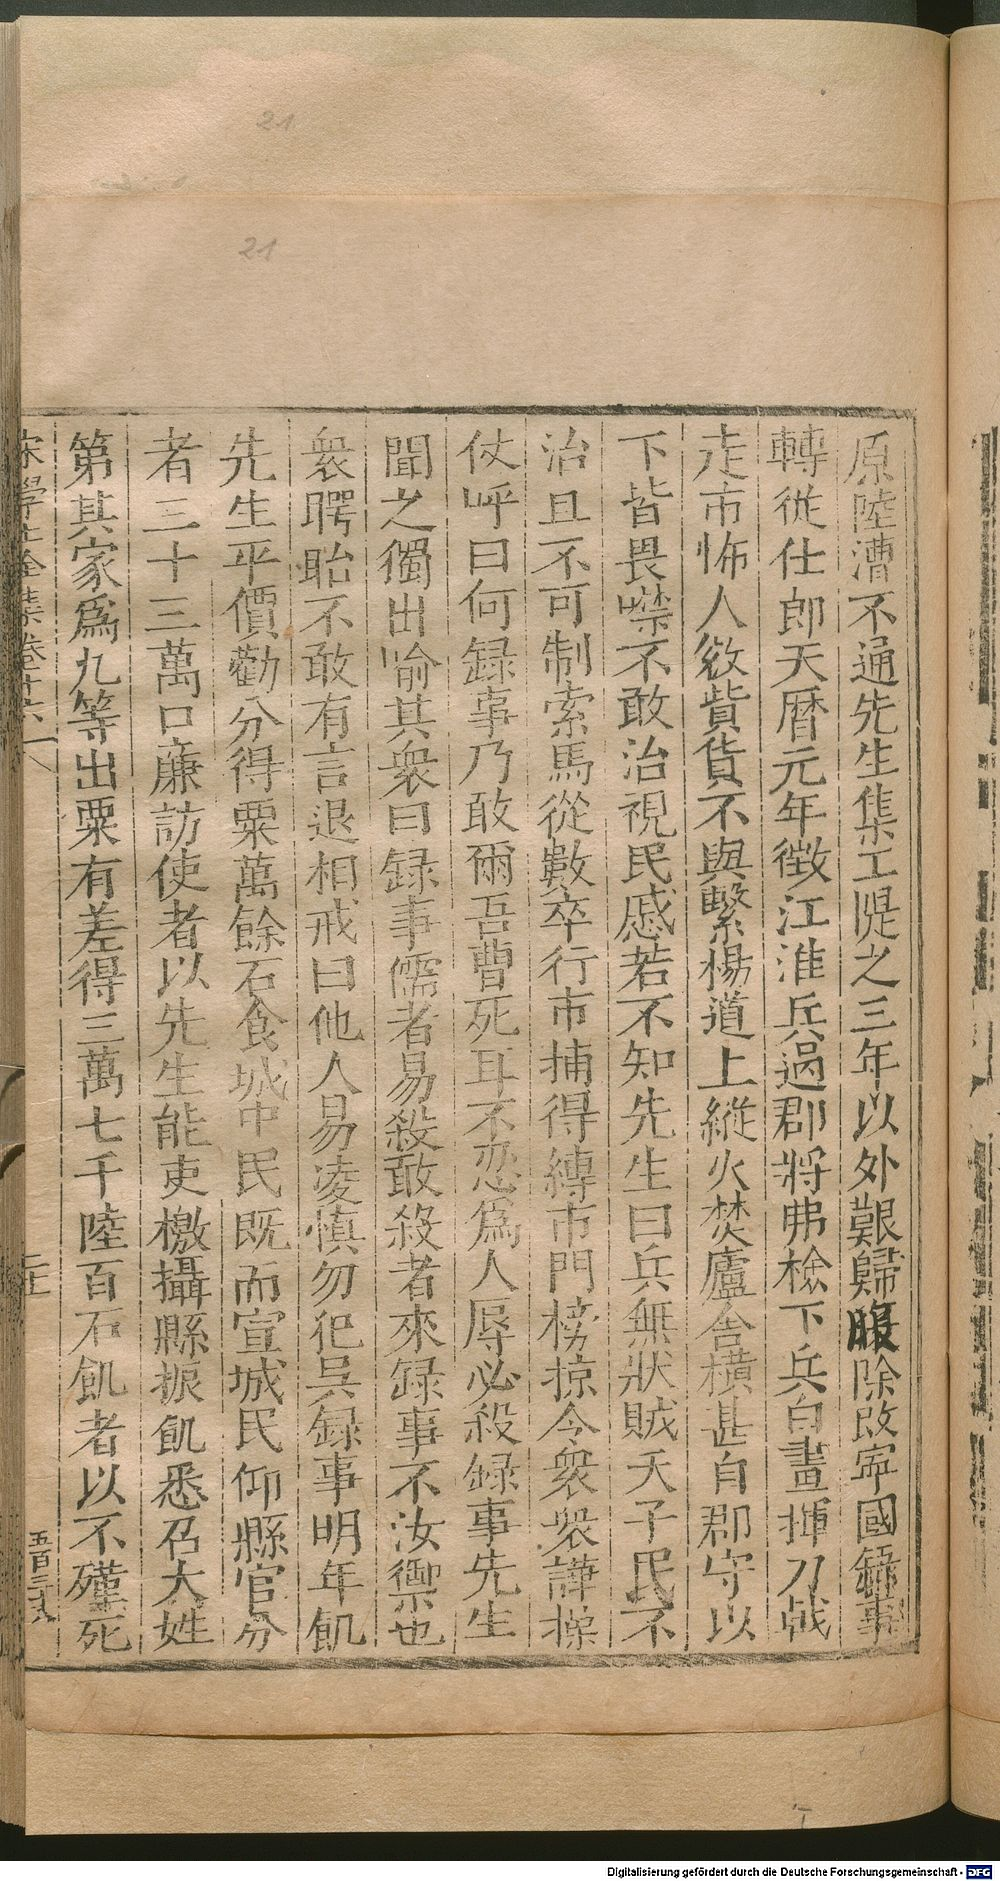 21
21
原陸漕不通先生集工隄之三年以外艱歸服除改寜國録事
轉從仕郎天曆元年徴江淮兵過郡將弗檢下兵白晝揮刀戟
走市怖人欲貲貨不與繫楊道上縱火焚廬舍橫甚自郡守以
下皆畏噤不敢治視民慼若不知先生曰兵無狀賊天子民不
治且不可制索馬從數卒行市捕得縳市門榜掠令衆衆譁操
仗呼曰何録事乃敢爾吾曹死耳不忍爲人辱必殺録事先生
聞之獨出喻其衆曰録事儒者易殺敢殺者來録事不汝禦也
衆愕眙不敢有言退相戒曰他人易凌慎勿犯吴録事明年飢
先生平價勸分得粟萬餘石食城中民既而宣城民仰縣官分
者二十三萬口㢘訪使者以先生能吏檄攝縣振飢悉召大姓
第其家爲九等出粟有差得三萬七千陸百石飢者以不殣死
宋學士全集卷廿六
二十
五百三十八
Digitalisierung gefördert durch die Deutsche Forschungsgemeinschaft - DFG